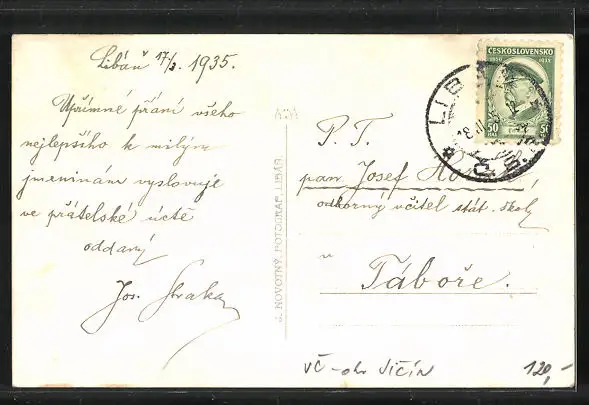 Libáň 17/3. 1935.
Upřímné přání všeho
nejlepšího k milým
jmeninám vyslovuje
ve přátelské úctě
oddaný
Jos. Straka
J. NOVOTNÝ, FOTOGRAF, LIBÁŇ.
ČESKOSLOVENSKO
1850 1935
50 50
HAL
P. T.
pan Josef
odborný učitel stát. školy
v
Táboře.
VČ - okr Jičín
120,-